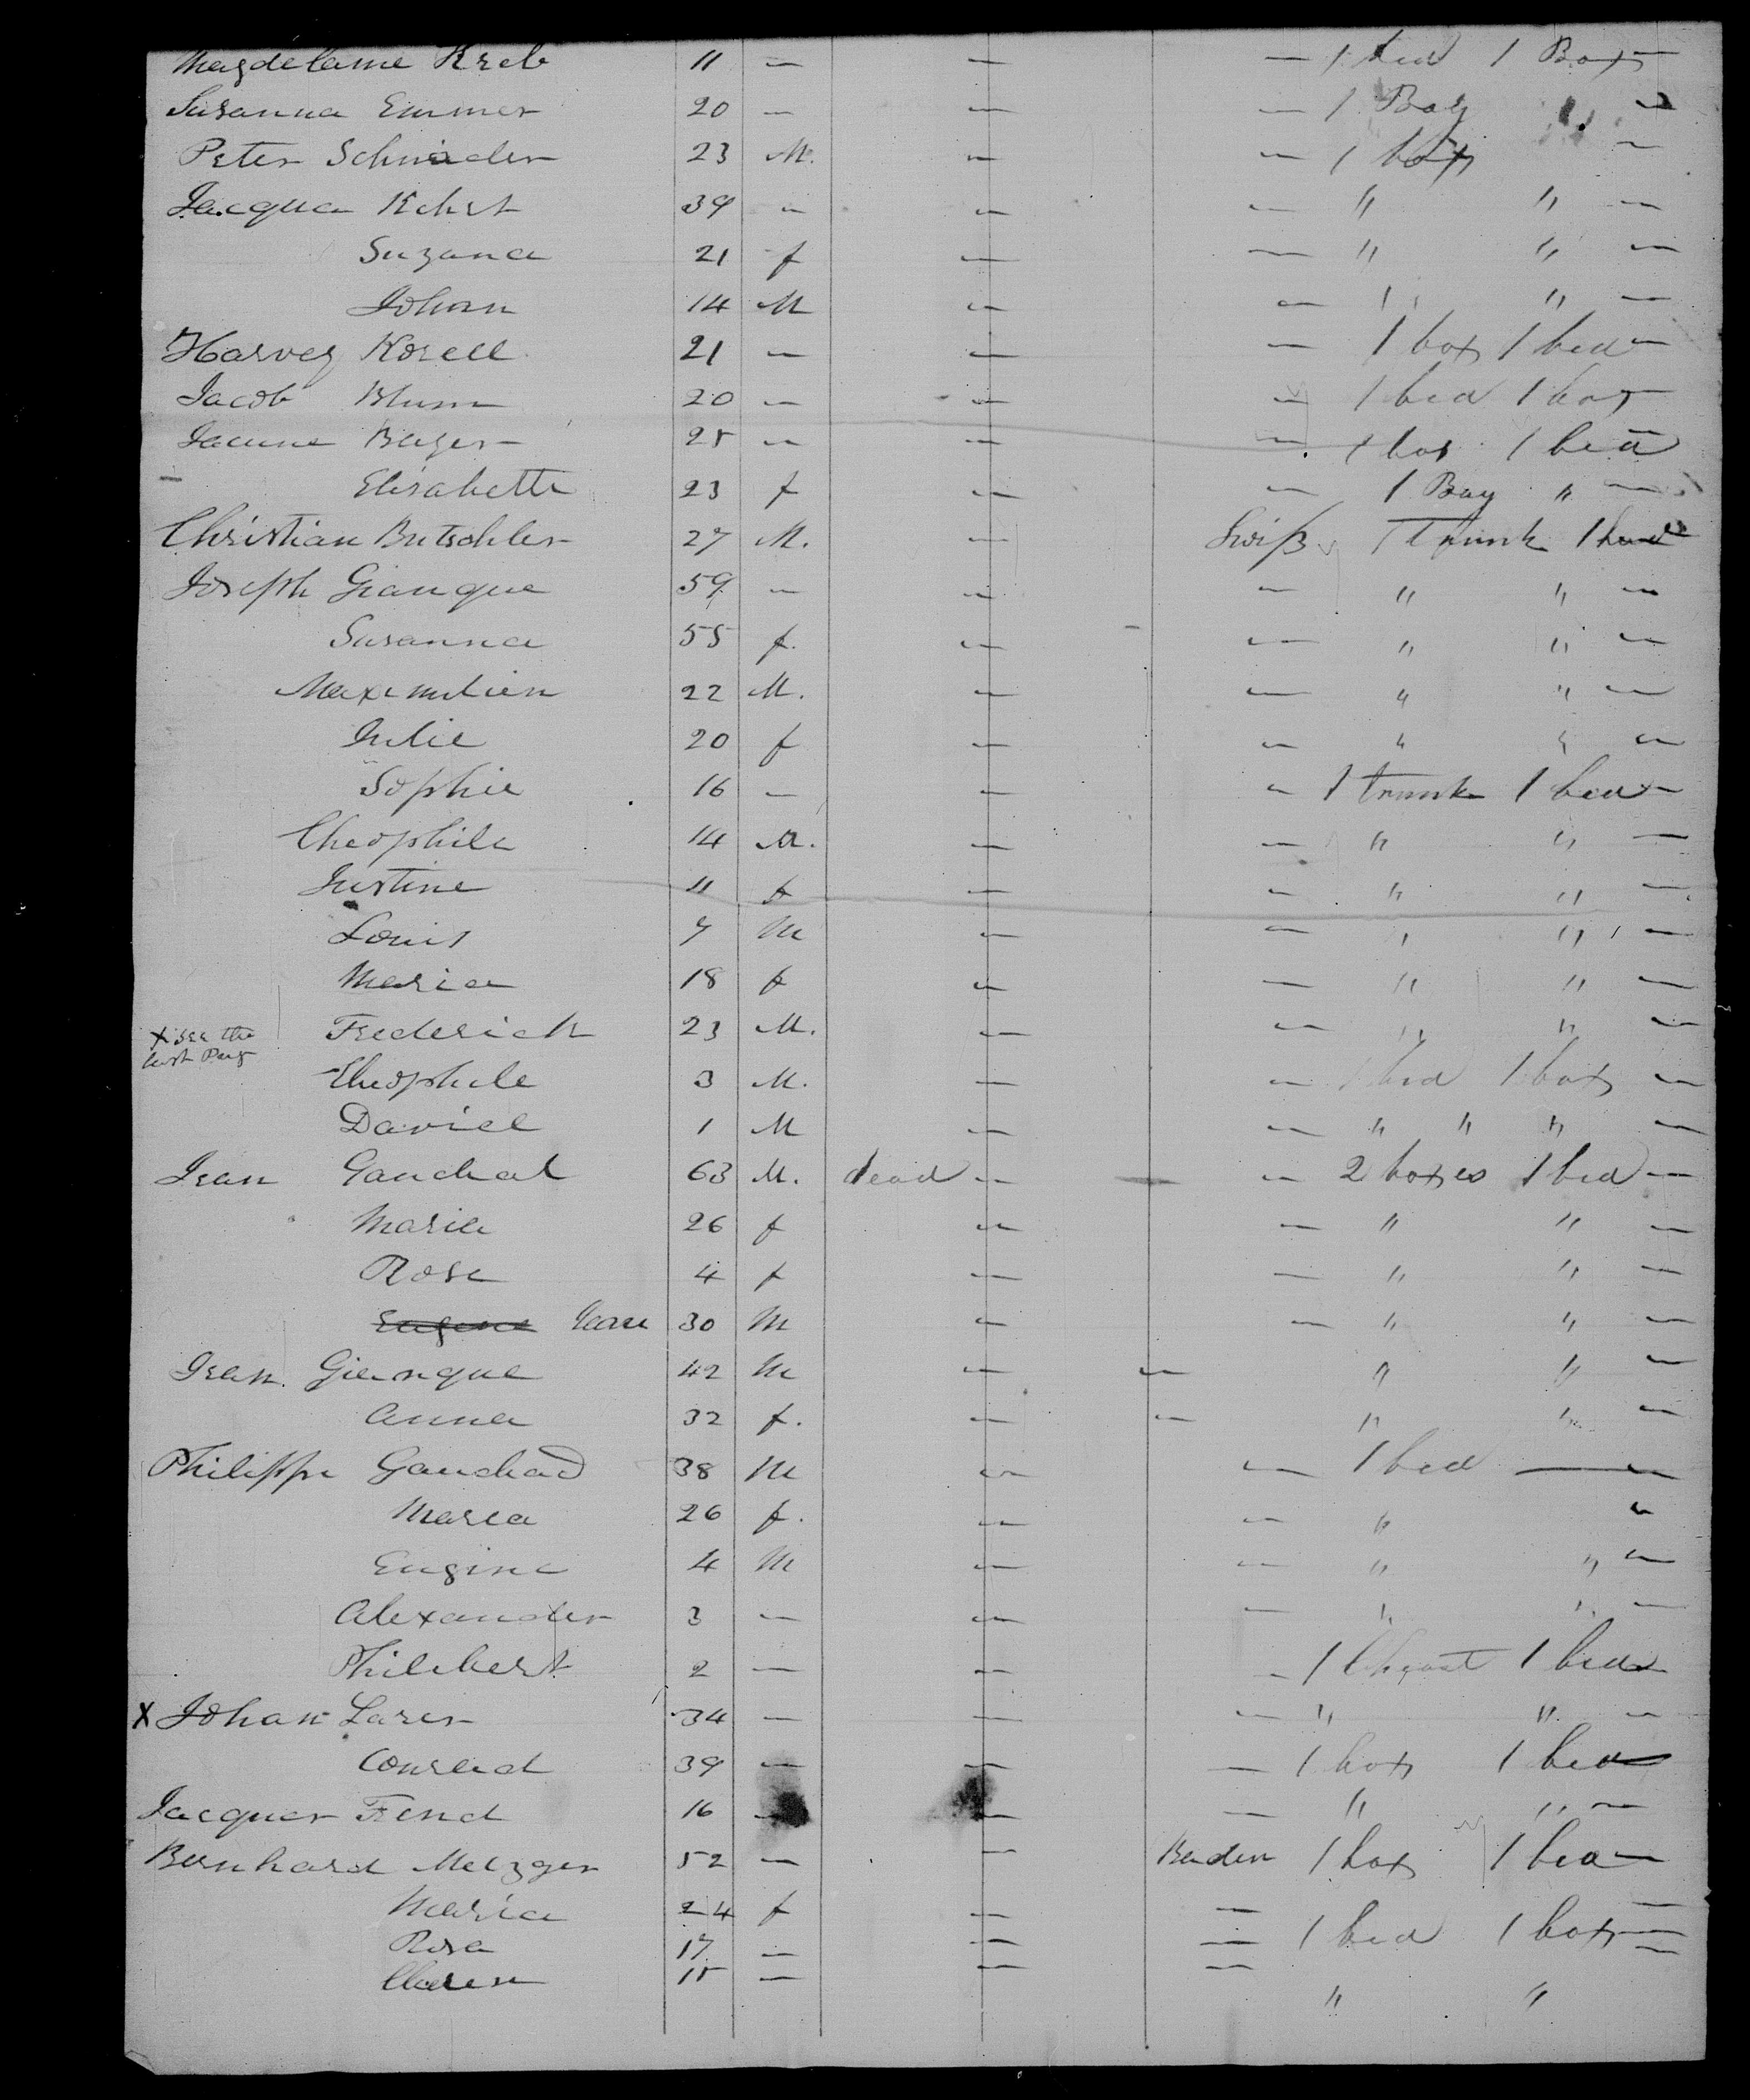 Magdelaine Kreb 11 — — — 1 bed 1 Box —
Susanna Emmer 20 — — — 1 Bag " —
Peter Schnieder 23 M. — — 1 box —
Jacque Kehrt 39 — — — " " —
Suzana 21 f — — " " —
Johan 14 M — — " " —
Harvey Korell 21 — — — 1 box 1 bed —
Jacob Blum 20 — — — 1 bed 1 box —
Bayer 25 — — — 1 box 1 bed
— Elisabette 23 f — — 1 Bag " —
Christian Butschler 27 M. — Swiß 1 trunk 1 bed
Joseph Gianque 59 — — — " " —
Susanna 55 f. — — " " —
Maximilien 22 M. — — " " —
Julie 20 f — — " " —
Sophie 16 — — — 1 trunk 1 bed —
Theophile 14 M. — — " " —
Justine 11 f — — " " —
Louis 7 M — — " " —
Maria 18 f — — " " —
x see the last Pag Frederick 23 M. — — " " —
Theophile 3 M. — — 1 bed 1 box —
Daniel 1 M — — " " " —
Jean Gauchat 63 M. dead — — 2 boxes 1 bed —
Maria 26 f — — " " —
Rose 4 f — — " " —
Eugene Jean 30 M — — " " —
Jean Gianque 42 M — — " " —
Anna 32 f. — — " " —
Philippe Gauchad 38 M — — 1 bed — —
Maria 26 f. — — " "
Eugine 4 M — — " " —
Alexander 3 — — — " " —
Philibert 2 — — — 1 Cheast 1 bed
X Johan Laser 34 — — — " " —
Conrad 39 — — — 1 box 1 bed
Jacques Fend 16 — — — " " —
Bernhard Metzger 52 — — Baden 1 box 1 bed —
Maria 24 f — — —
Rosa 17 — — — 1 bed 1 box —
15 — — — " "